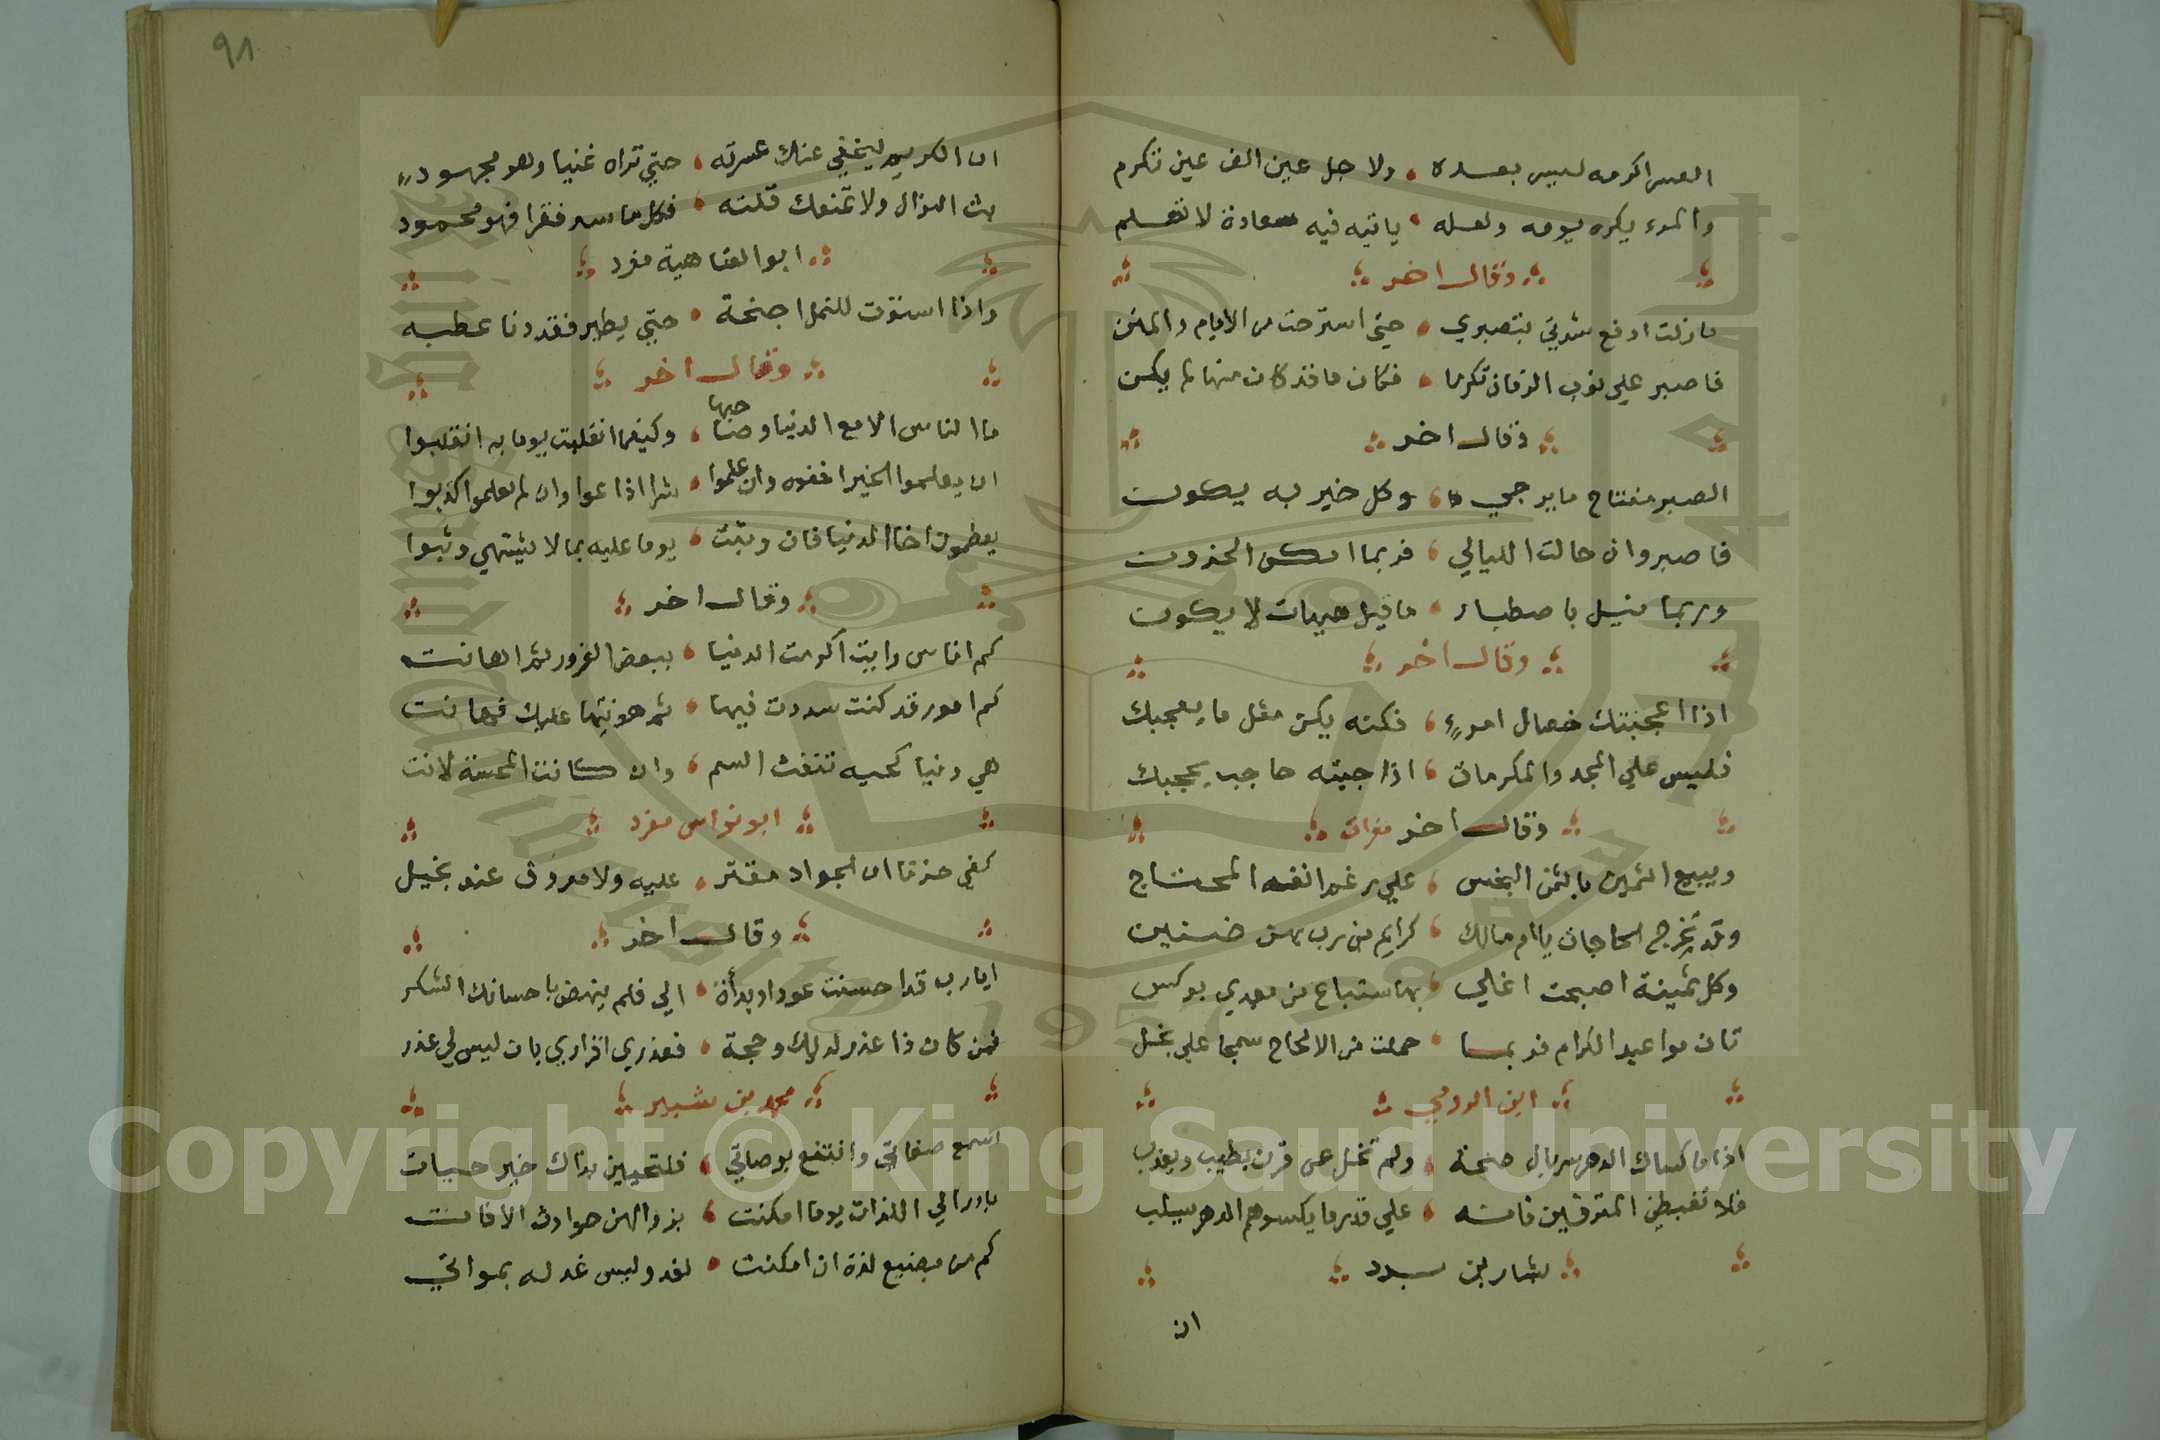 العسر اكرمه ليسر بعده ولاجل عين الف عين تكرم
والمرء يكره يومه ولعله ياتيه فيه سعادة لا تعلم
وقال اخر
ما زلت ادفع شدتي بتصبري حتي استرحت من الايام والمنن
فاصبر علي نوب الزمان تكرما فكان ما قد كان منها لم يكن
وقال اخر
الصبر مفتاح ما يرجي وكل خير به يكون
فاصبر وان حالت الليالي فربما امكن الحزون
وربما نيل باصطبار ما قيل هيهات لا يكون
وقال اخر
اذا اعجبتك خصال امرء فكنه يكن مثل ما يعجبك
فليس علي المجد والمكرمات اذا جيته حاجب يحجبك
وقال اخر
ويبيع الثمين بالثمن البخس علي رغم انفه المحتاج
وقد تخرج الحاجات يا ام مالك كرايم من رب بهن ضنين
وكل ثمينة اصبحت اغلي بها ستباع من بعدي بوكس
تان مواعيد الكرام فربما حملت من الالحاح سمجا علي بخل
ابن الرومي
اذا ما كساك الدهر سربال صحة ولم تخل من قوت يطيب ويعذب
فلا تغبطن المترفين فانه علي قدر ما يكسوهم الدهر يسلب
بشار بن برد
ان
٩٨
ان الكريم ليخفي عنك عسرته حتي تراه غنيا وهو مجهود
بث النوال ولا تمنعك قلته فكل ما سد فقرا فهو محمود
ابو العتاهية مفرد
واذا استوت للنمل اجنحة حتي يطير فقد دنا عطبه
وقال اخر
ما الناس الا مع الدنيا وصاحبها وكيفما انقلبت يوما به انقلبوا
ان يعلموا الخير اخفوه وان علموا شرا اذاعوا وان لم يعلموا كذبوا
يعظمون اخا الدنيا فان وثبت يوما عليه بما لا يشتهي وثبوا
وقال اخر
كم اناس رايت اكرمت الدنيا ببعض الغرور ثم اهانت
كم امور قد كنت شددت فيها ثم هونتها عليك فهانت
هي دنيا كحيه تنفث السم وان كانت المجسة لانت
ابو نواس مفرد
كفي حزنا ان الجواد مقتر عليه ولا معروف عند بخيل
وقال اخر
ايا رب قد احسنت عودا وبدأة الي فلم ينهض باحسانك الشكر
فمن كان ذا عذر لديك وحجة فعذري اقراري بان ليس لي عذر
محمد بن بشير
اسمع صفاتي وانتفع بوصاتي فلتحيين بذاك خير حيات
بادر الي اللذات يوما امكنت بزوالهن حوادث الافات
كم من مضيع لذة ان امكنت لغد وليس غد له بمواتي
Copyright © King Saud University